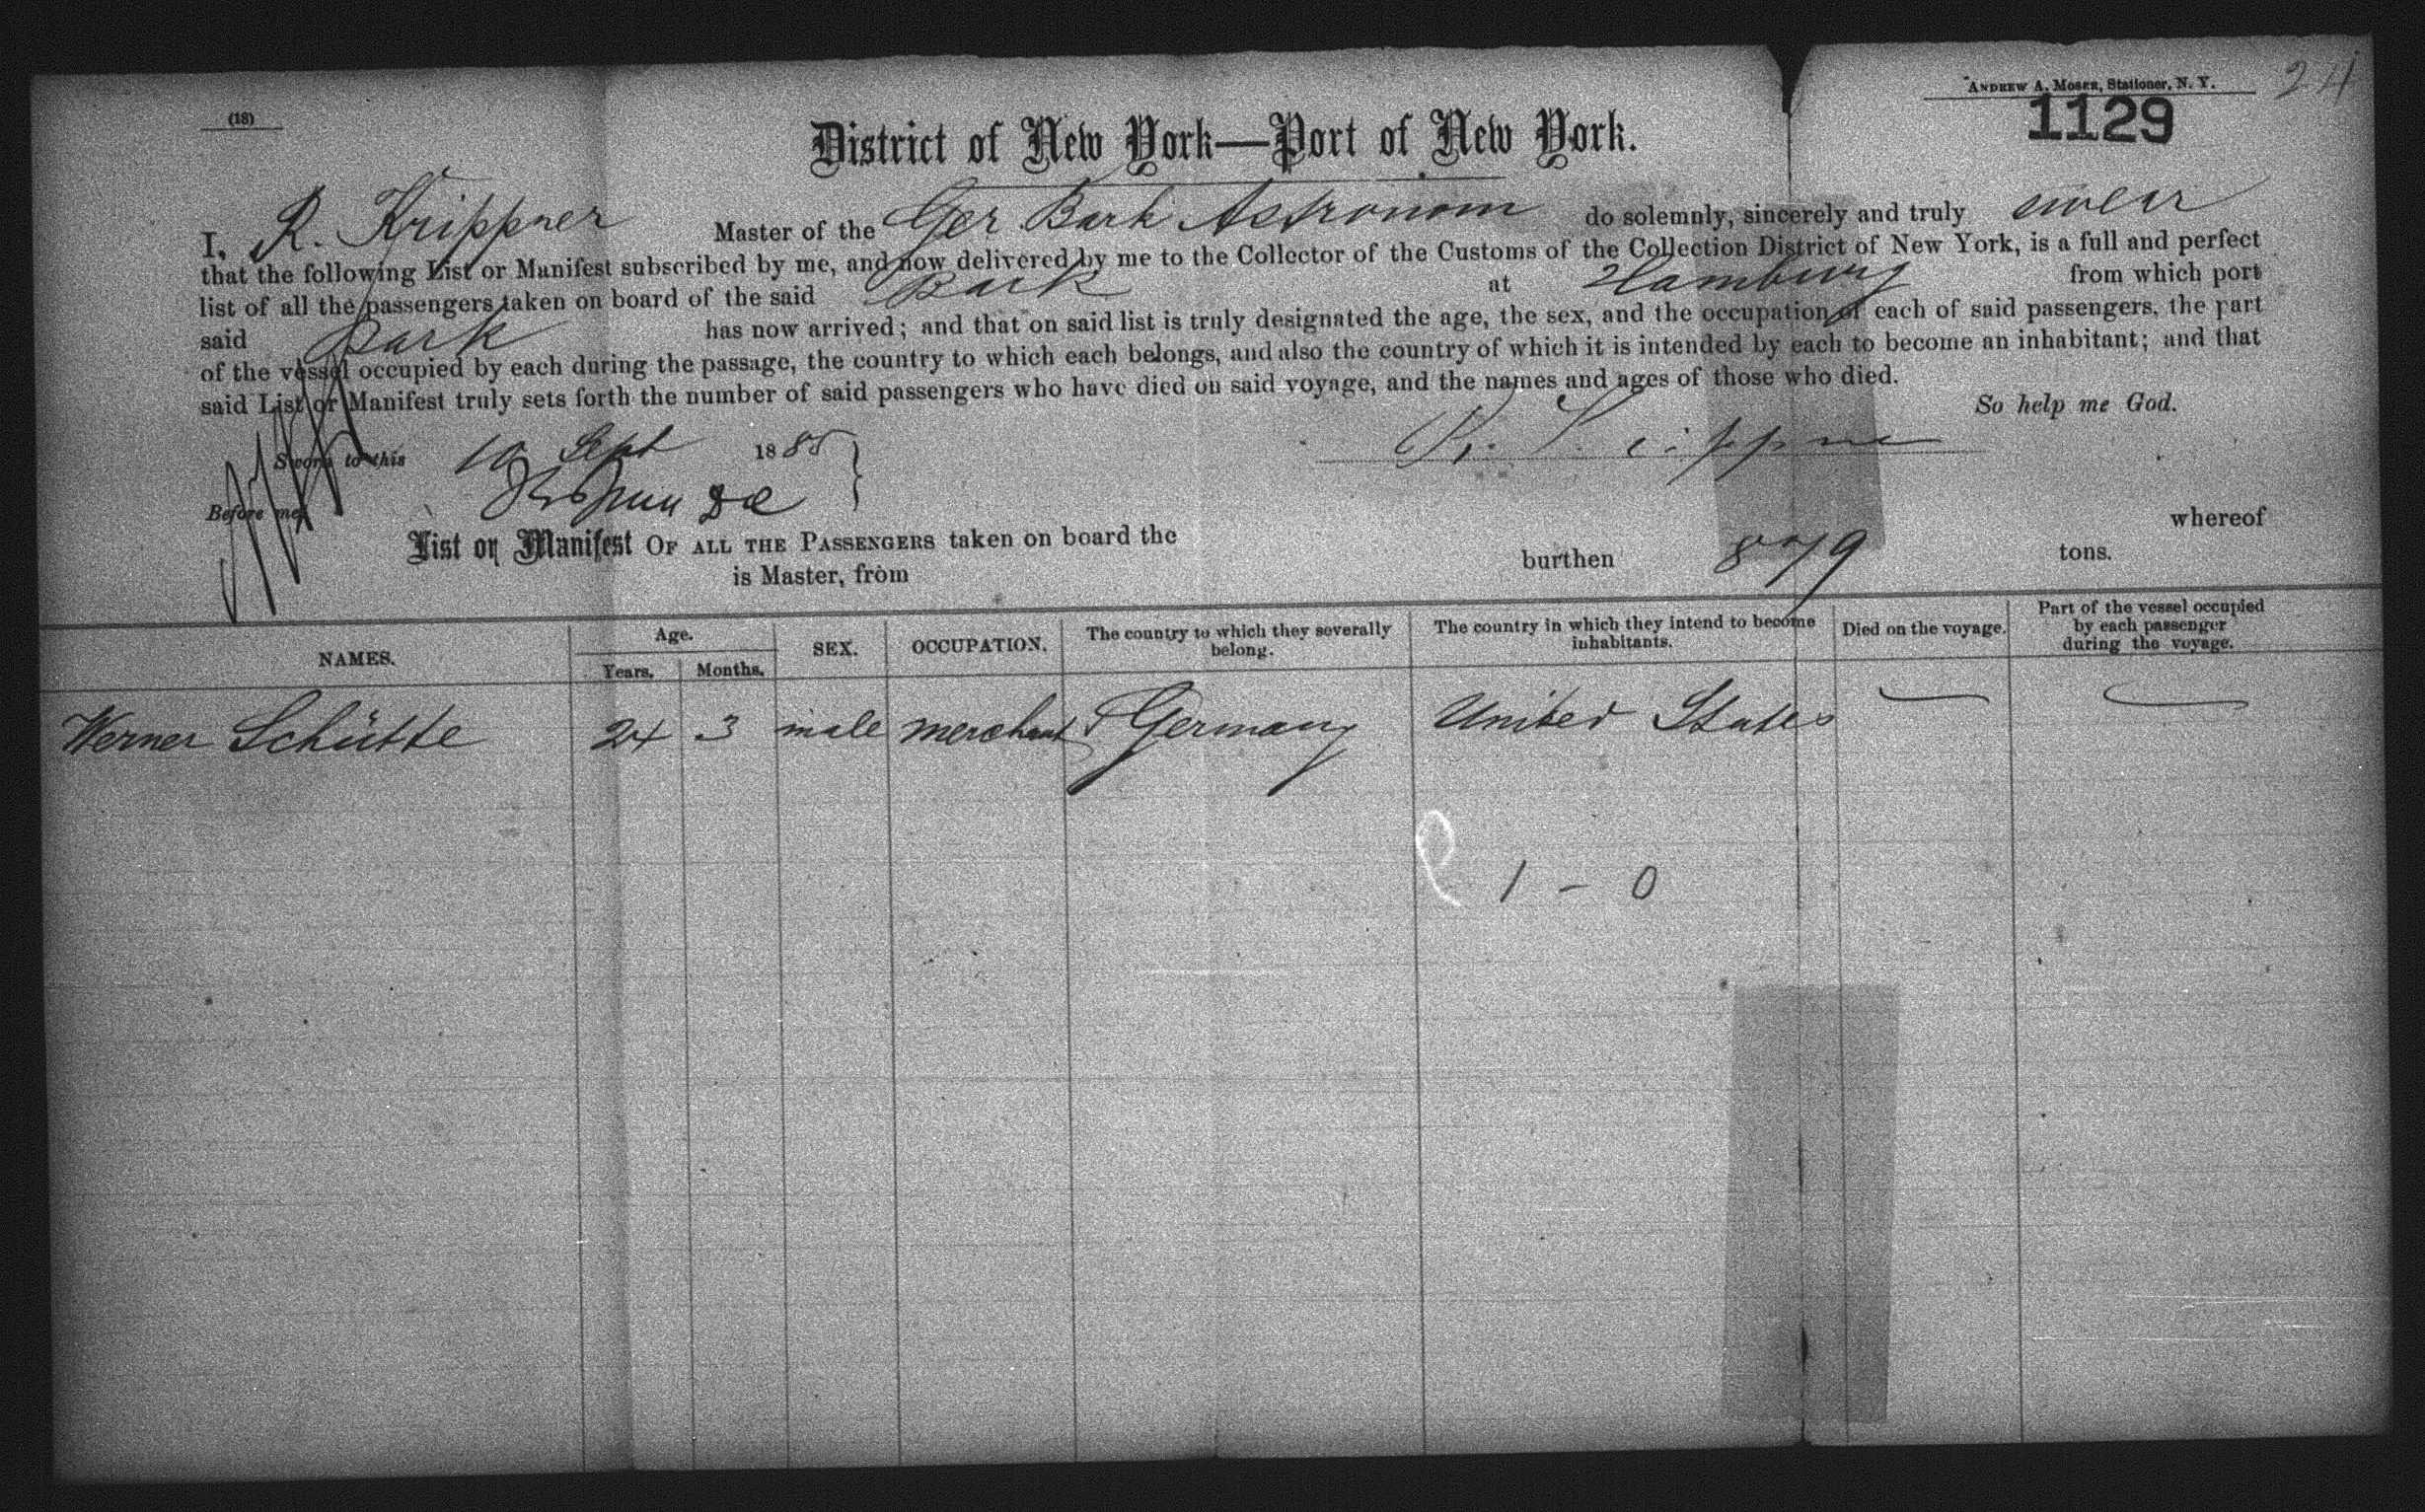 (18)
ANDREW A. MOSER, Stationer, N. Y.
24
1129
District of New York—Port of New York.
I, R. Krippner Master of the Ger Bark Astronom do solemnly, sincerely and truly swear
that the following List or Manifest subscribed by me, and now delivered by me to the Collector of the Customs of the Collection District of New York, is a full and perfect
list of all the passengers taken on board of the said Bark at Hamburg from which port
said Bark has now arrived; and that on said list is truly designated the age, the sex, and the occupation of each of said passengers, the part
of the vessel occupied by each during the passage, the country to which each belongs, and also the country of which it is intended by each to become an inhabitant; and that
said List or Manifest truly sets forth the number of said passengers who have died on said voyage, and the names and ages of those who died.
So help me God.
Sworn to this 10 Sept 1885
R. Krippner
Before me,
List or Manifest OF ALL THE PASSENGERS taken on board the whereof
is Master, from burthen 879 tons.
NAMES. Age. Years. Months. SEX. OCCUPATION. The country to which they severally belong. The country in which they intend to become inhabitants. Died on the voyage. Part of the vessel occupied by each passenger during the voyage.
Werner Schütte 24 3 male merchant Germany United States — —
1 - 0